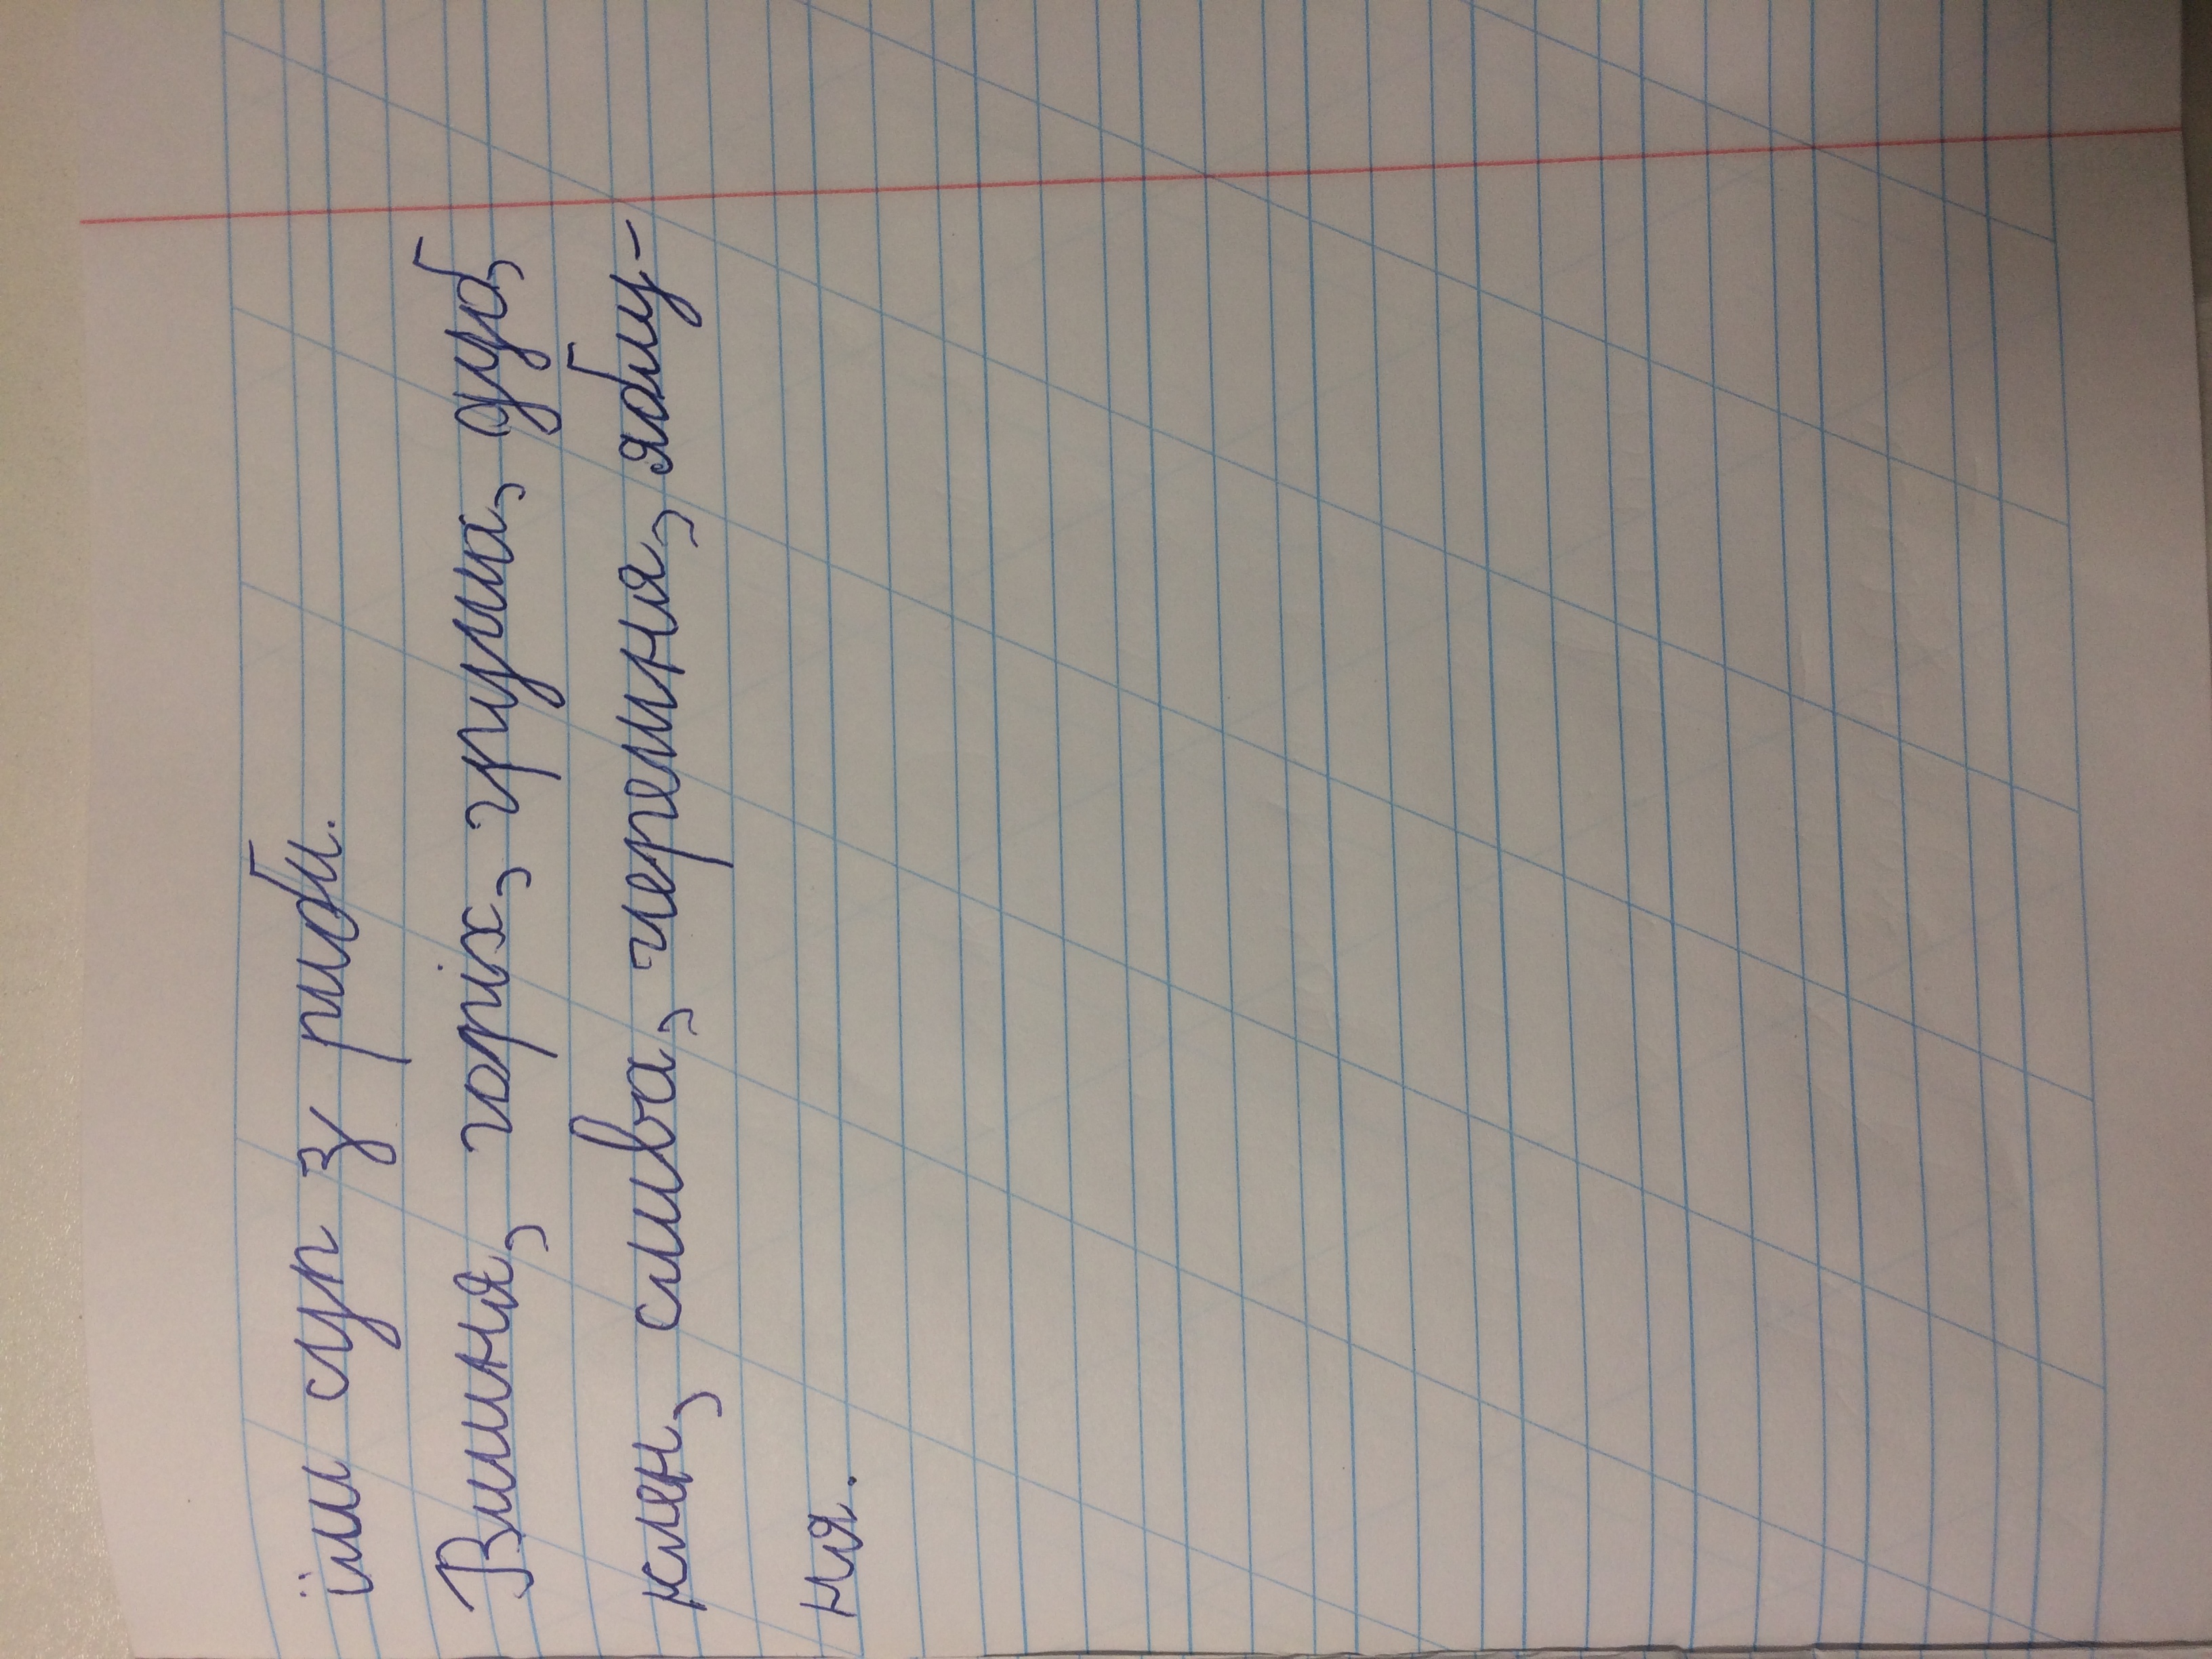 їли суп з риби.
Вишня, горіх, груша, дуб,
клен, слива, черешня, яблу-
ня.